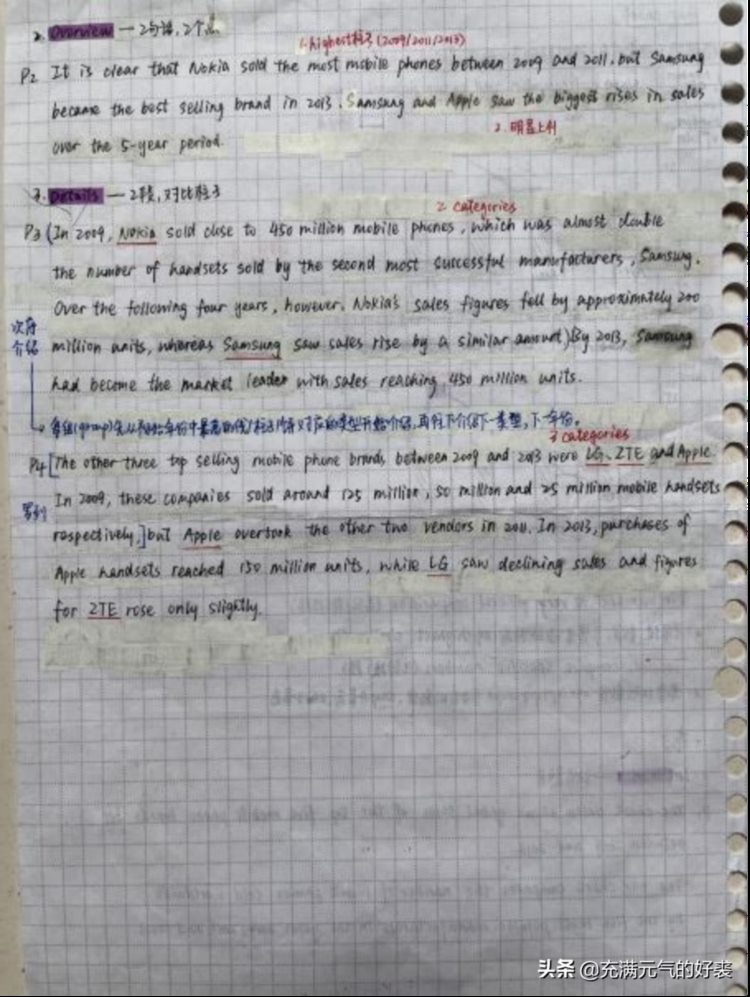 2. Overview — 2句话, 2个点
1. highest柱子(2009/2011/2013)
P2 It is clear that Nokia sold the most mobile phones between 2009 and 2011, but Samsung
became the best selling brand in 2013. Samsung and Apple saw the biggest rises in sales
2. 明显上升
over the 5-year period.
3. Details — 2段, 对比柱子
2 categories
P3 (In 2009, Nokia sold close to 450 million mobile phones, which was almost double
the number of handsets sold by the second most successful manufacturers, Samsung.
Over the following four years, however, Nokia's sales figures fell by approximately 200
次序
介绍
million units, whereas Samsung saw sales rise by a similar amount) By 2013, Samsung
had become the market leader with sales reaching 450 million units.
每组(group)先从开始年份中最高的线/柱子 对应的类型开始介绍, 再往下介绍下一类型, 下一年份。
3 categories
P4 [The other three top selling mobile phone brands between 2009 and 2013 were LG, ZTE and Apple.
In 2009, these companies sold around 125 million, 50 million and 25 million mobile handsets
罗列
respectively,] but Apple overtook the other two vendors in 2011. In 2013, purchases of
Apple handsets reached 150 million units, while LG saw declining sales and figures
for ZTE rose only slightly.
头条 @充满元气的好裘